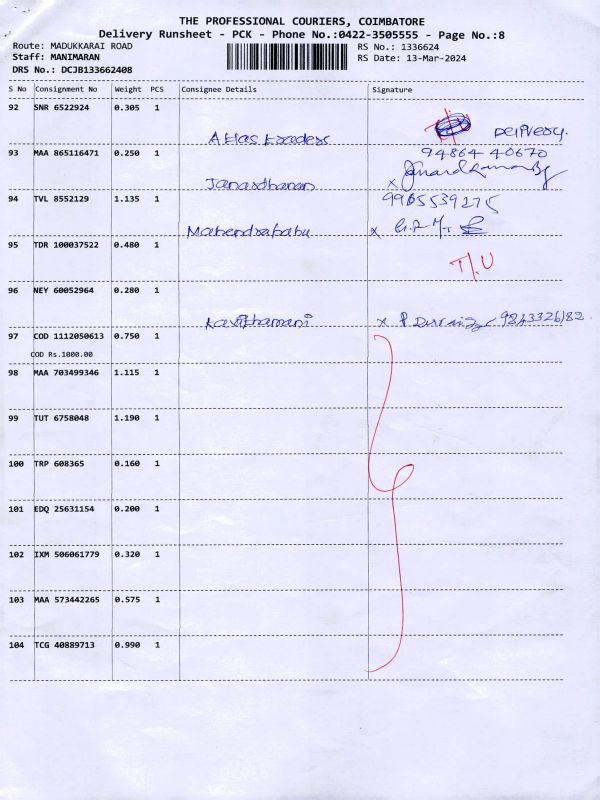 THE PROFESSIONAL COURIERS, COIMBATORE
Delivery Runsheet - PCK - Phone No.:0422-3505555 - Page No.:8
Route: MADUKKARAI ROAD
Staff: MANIMARAN
DRS No.: DCJB133662408
RS No.: 1336624
RS Date: 13-Mar-2024
S No Consignment No Weight PCS Consignee Details Signature
92 SNR 6522924 0.305 1 Atlas traders Delivery.
93 MAA 865116471 0.250 1 Janardhanan 94864 40670
94 TVL 8552129 1.135 1 Mahendrababu 9965539275
x G.R. M.T
95 TDR 100037522 0.480 1 T/U
96 NEY 60052964 0.280 1 Kavithamani x P 9843326182
97 COD 1112050613 0.750 1
COD Rs.1000.00
98 MAA 703499346 1.115 1
99 TUT 6758048 1.190 1
100 TRP 608365 0.160 1
101 EDQ 25631154 0.200 1
102 IXM 506061779 0.320 1
103 MAA 573442265 0.575 1
104 TCG 40889713 0.990 1